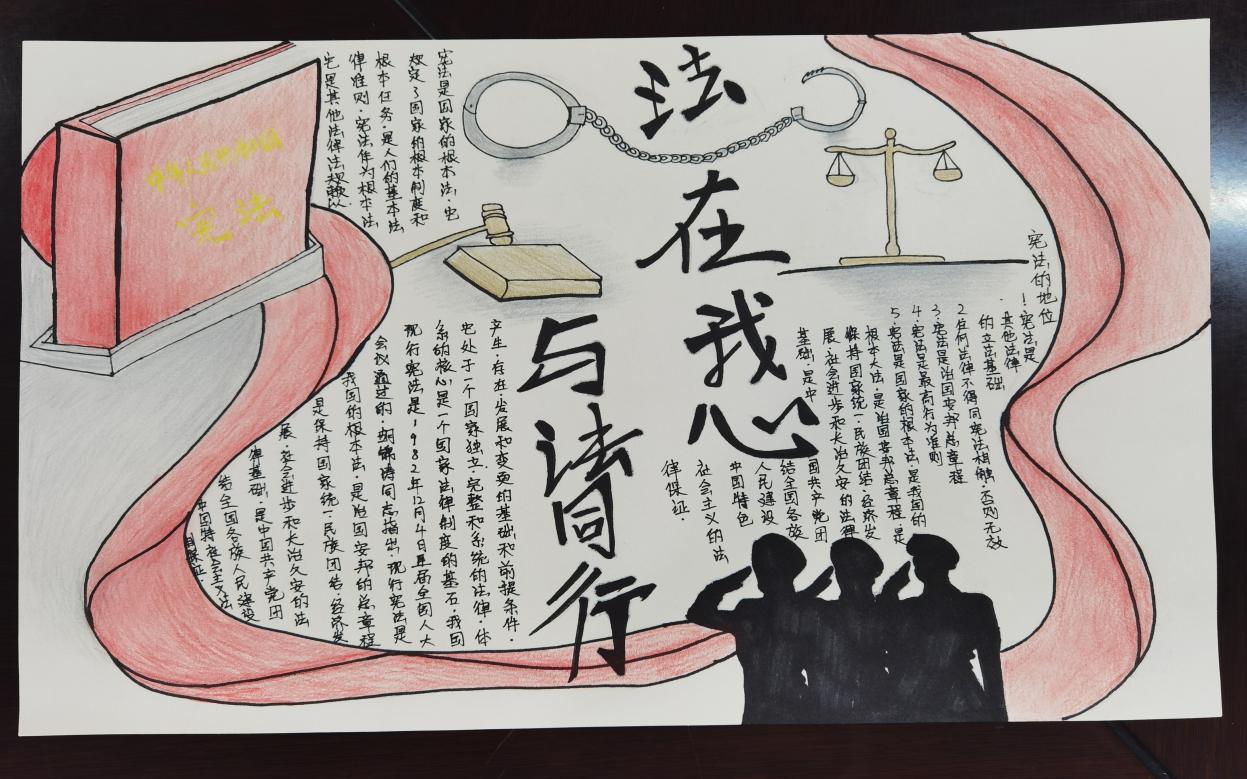 法在我心
与法同行
中华人民共和国
宪法
宪法的地位
1.宪法是
其他法律
的立法基础
2任何法律不得同宪法相触.否则无效
3.宪法是治国安邦总章程
4.宪法是最高行为准则
5.宪法是国家的根本法.是我国的
根本大法.是治国安邦总章程.是
保持国家统一.民族团结.经济发
展.社会进步和长治久安的法律
基础.是中
国共产党团
结全国各族
人民建设
中国特色
社会主义的法
律保证.
宪法是国家的根本法.它
规定了国家的根本制度和
根本任务.是人们的基本法
律准则.宪法作为根本法
它是其他法律法规赖以
产生.存在.发展和变更的基础和前提条件.
它处于一个国家独立.完整和系统的法律.体
系的核心是一个国家法律制度的基石.我国
现行宪法是1982年12月4日五届全国人大
会议通过的.胡锦涛同志指出.现行宪法是
我国的根本法.是治国安邦的总章程
是保持国家统一.民族团结.经济发
展.社会进步和长治久安的法
律基础.是中国共产党团
结全国各族人民建设
中国特色社会主义法
保证.